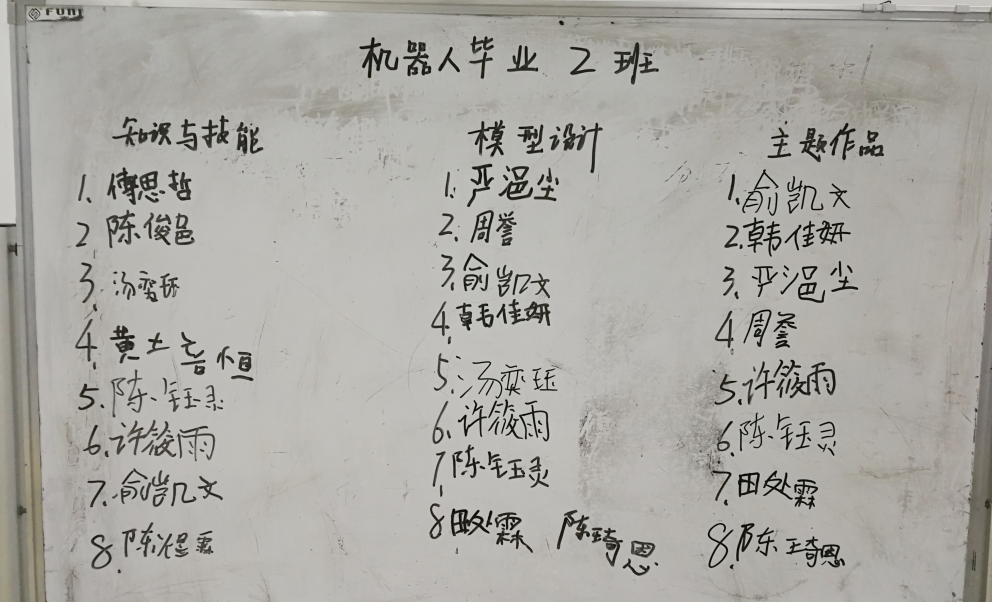 FUNI
机器人毕业 2 班
知识与技能
1. 傅思哲
2 陈俊邑
3. 汤奕珏
4. 黄土
5. 陈钰灵
6. 许筱雨
7. 俞凯文
8. 陈煜霖
模型设计
1. 严浥尘
2. 周誉
3. 俞凯文
4. 韩佳妍
5. 汤奕珏
6. 许筱雨
7. 陈钰灵
8 田处霖 陈琦恩
主题作品
1. 俞凯文
2. 韩佳妍
3. 严浥尘
4 周誉
5. 许筱雨
6. 陈钰灵
7. 田处霖
8. 陈琦恩